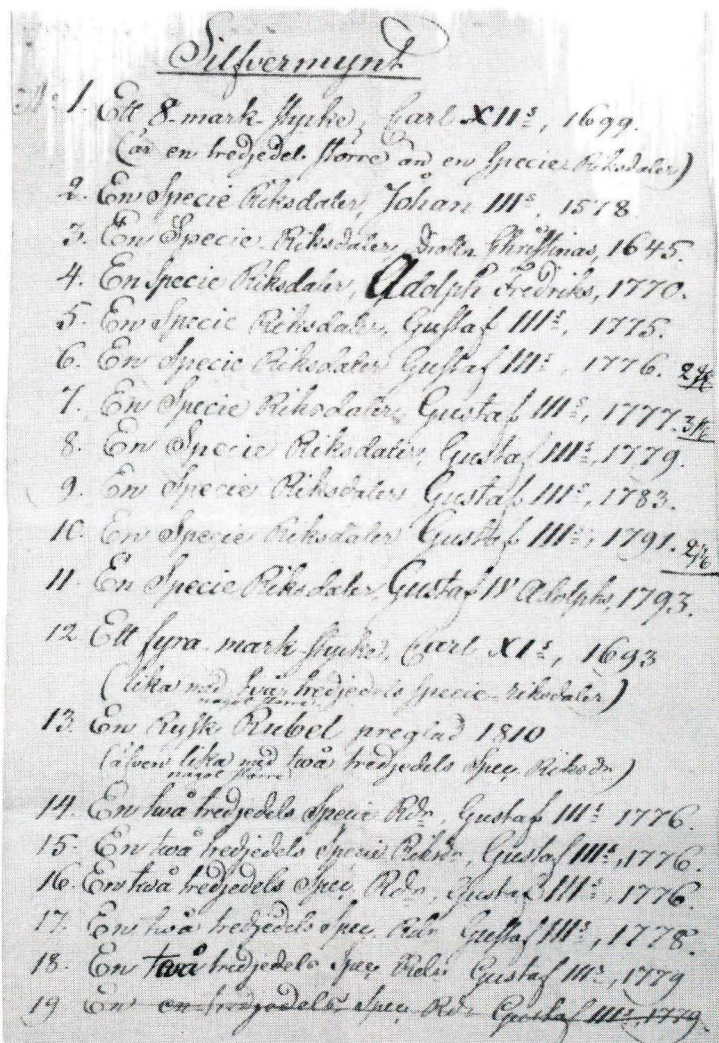 Silfvermynt
N:o 1. Ett 8-mark-stycke, Carl XII:s, 1699.
(är en tredjedel större än en Specie Riksdaler)
2. En Specie Riksdaler, Johan III:s, 1578.
3. En Specie Riksdaler, Drottn Christinas, 1645.
4. En Specie Riksdaler, Adolph Fredriks, 1770.
5. En Specie Riksdaler, Gustaf III:s, 1775.
6. En Specie Riksdaler Gustaf III:s, 1776. 2
7. En Specie Riksdaler, Gustaf III:s, 1777. 3
8. En Specie Riksdaler, Gustaf III:s, 1779.
9. En Specie Riksdaler Gustaf III:s, 1783.
10. En Specie Riksdaler Gustaf III:s, 1791. 2
11. En Specie Riksdaler, Gustaf IV Adolphs, 1793.
12. Ett fyra-mark-stycke, Carl XI:s, 1693
(lika med två tredjedels specie-riksdaler)
något större
13. En Rysk Rubel preglad 1810
(äfven lika med två tredjedels Spec. Riksdr)
något större
14. En två tredjedels Specie Rdr, Gustaf III:s 1776.
15. En två tredjedels Specie Riksdr, Gustaf III:s, 1776.
16. En två tredjedels Spec. Rdr, Gustaf III:s, 1776.
17. En två tredjedels Spec. Rdr Gustaf III:s, 1778.
18. En två tredjedels Spec. Rdr Gustaf III:s, 1779
19 En en tredjedels Spec. Rdr Gustaf III:s, 1779.